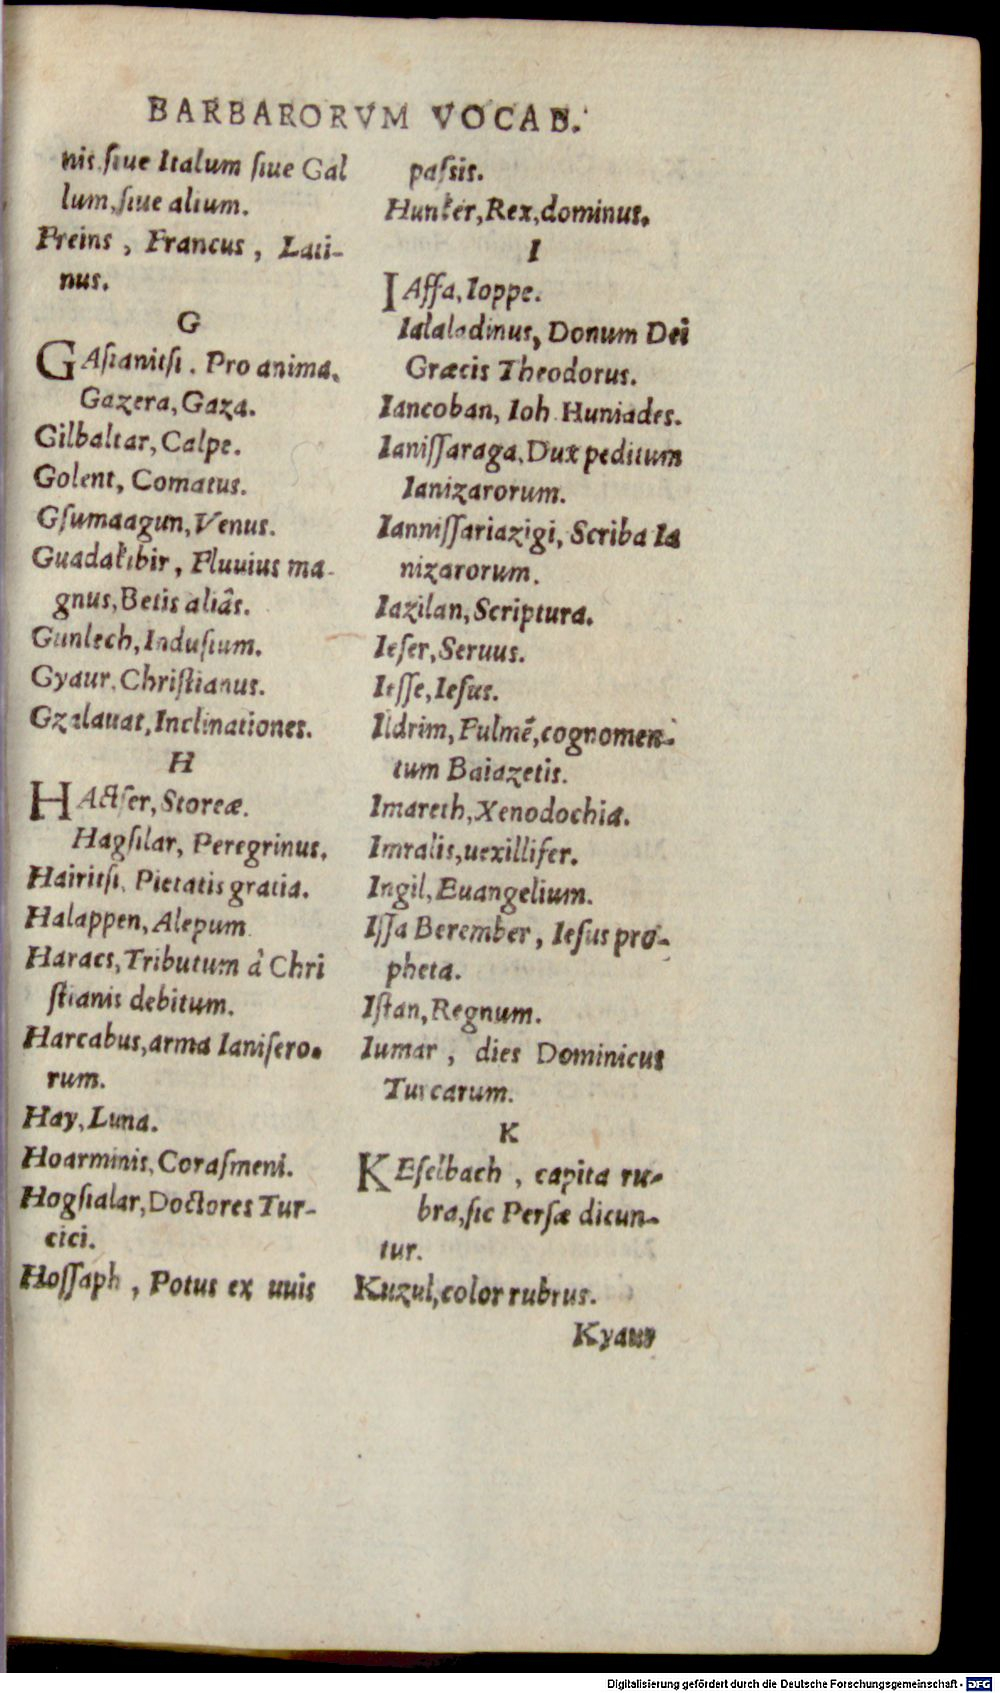 BARBARORVM VOCAB.
nis, ſiue Italum ſiue Gal
lum, ſiue alium.
Freins, Francus, Lati-
nus.
G
GAſianitſi. Pro anima.
Gazera, Gaza.
Gilbaltar, Calpe.
Golent, Comatus.
Gſumaagun, Venus.
Guadalkibir, Fluuius ma-
gnus, Betis aliâs.
Gunlech, Induſium.
Gyaur, Chriſtianus.
Gzalauat, Inclinationes.
H
HActſer, Storeæ.
Hagſilar, Peregrinus.
Hairitſi, Pietatis gratia.
Halappen, Alepum
Haracs, Tributum à Chri
ſtianis debitum.
Harcabus, arma Ianiſero-
rum.
Hay, Luna.
Hoarminis, Coraſmeni.
Hogſialar, Doctores Tur-
cici.
Hoſſaph, Potus ex uuis
paſsis.
Hunker, Rex, dominus.
I
IAffa, Ioppe.
Ialaladinus, Donum Dei
Græcis Theodorus.
Iancoban, Ioh. Huniades.
Ianiſſaraga, Dux peditum
Ianizarorum.
Ianniſſariazigi, Scriba Ia
nizarorum.
Iazilan, Scriptura.
Ieſer, Seruus.
Ieſſe, Ieſus.
Ildrim, Fulmẽ, cognomen-
tum Baiazetis.
Imareth, Xenodochia.
Imralis, uexillifer.
Ingil, Euangelium.
Iſſa Berember, Ieſus pro-
pheta.
Iſtan, Regnum.
Iumar, dies Dominicus
Turcarum.
K
KEſelbach, capita ru-
bra, ſic Perſæ dicun-
tur.
Kuzul, color rubrus.
Kyaur
Digitalisierung gefördert durch die Deutsche Forschungsgemeinschaft - DFG